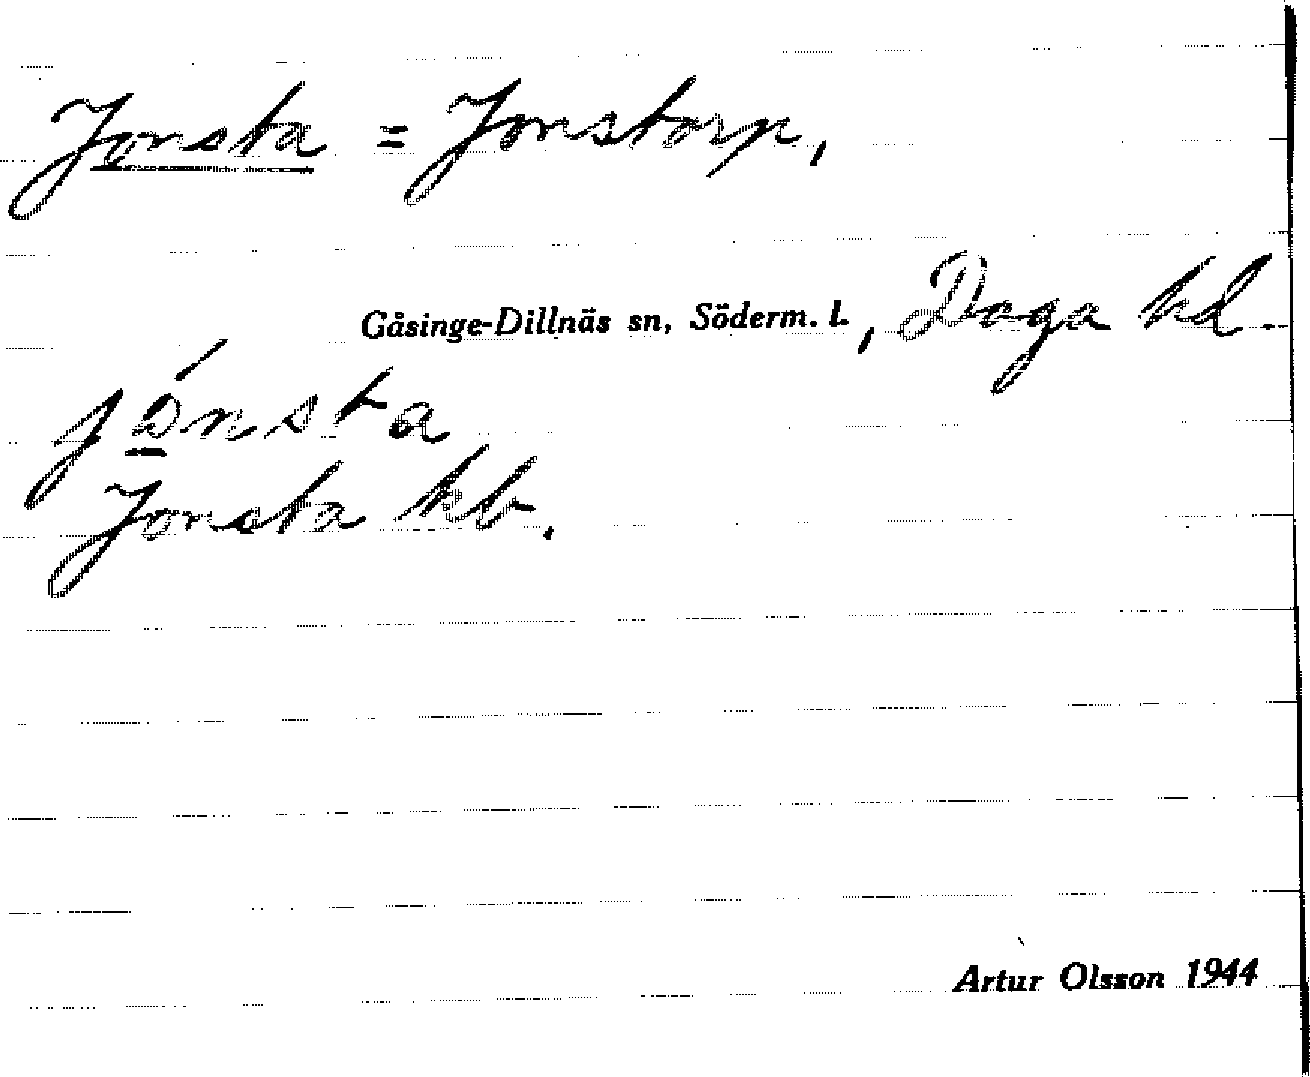 Jonsta = Jonstorp,
Gåsinge-Dillnäs sn, Söderm. l., Daga hd.
jónsta
Jonsta kb.
Artur Olsson 1944